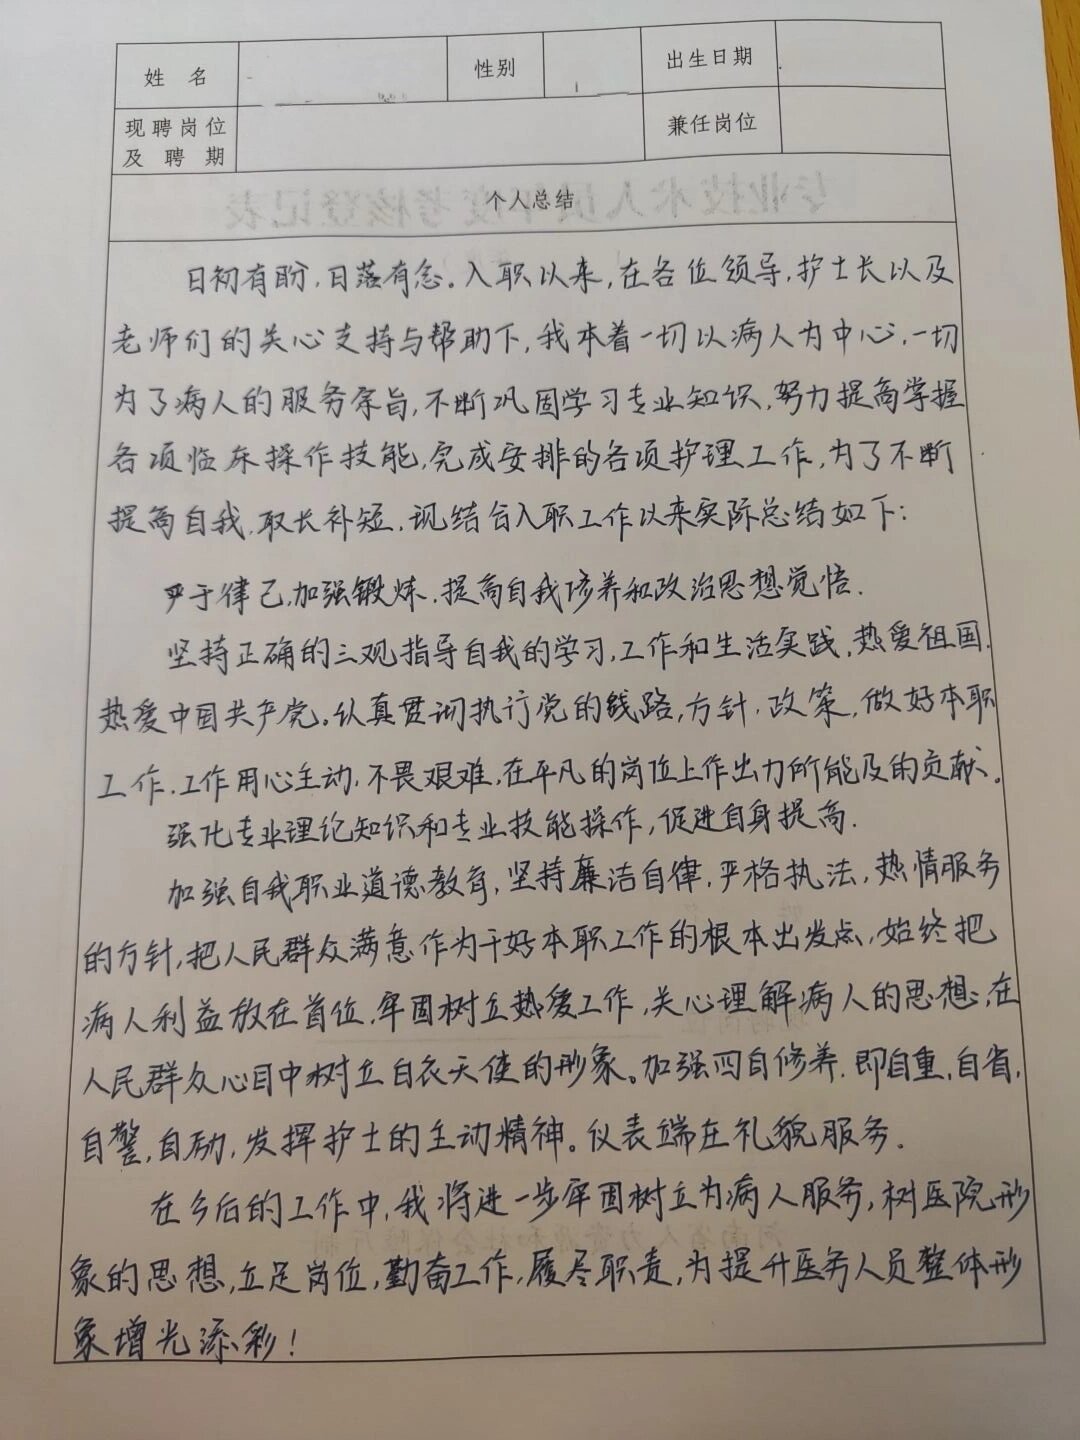 姓 名 性别 出生日期
现聘岗位
及 聘 期 兼任岗位
个人总结
日初有盼,日落有念。入职以来,在各位领导,护士长以及
老师们的关心支持与帮助下,我本着一切以病人为中心,一切
为了病人的服务宗旨,不断巩固学习专业知识,努力提高掌握
各项临床操作技能,完成安排的各项护理工作,为了不断
提高自我,取长补短,现结合入职工作以来实际总结如下:
严于律己,加强锻炼,提高自我修养和政治思想觉悟.
坚持正确的三观指导自我的学习,工作和生活实践,热爱祖国,
热爱中国共产党。认真贯彻执行党的线路,方针,政策,做好本职
工作,工作用心主动,不畏艰难,在平凡的岗位上作出力所能及的贡献。
强化专业理论知识和专业技能操作,促进自身提高.
加强自我职业道德教育,坚持廉洁自律,严格执法,热情服务
的方针,把人民群众满意作为干好本职工作的根本出发点,始终把
病人利益放在首位,牢固树立热爱工作,关心理解病人的思想,在
人民群众心目中树立白衣天使的形象。加强四自修养,即自重,自省,
自警,自励,发挥护士的主动精神。仪表端庄礼貌服务.
在今后的工作中,我将进一步牢固树立为病人服务,树医院形
象的思想,立足岗位,勤奋工作,履尽职责,为提升医务人员整体形
象增光添彩!
专业技术人员年度考核登记表
河南省人力资源和社会保障厅制